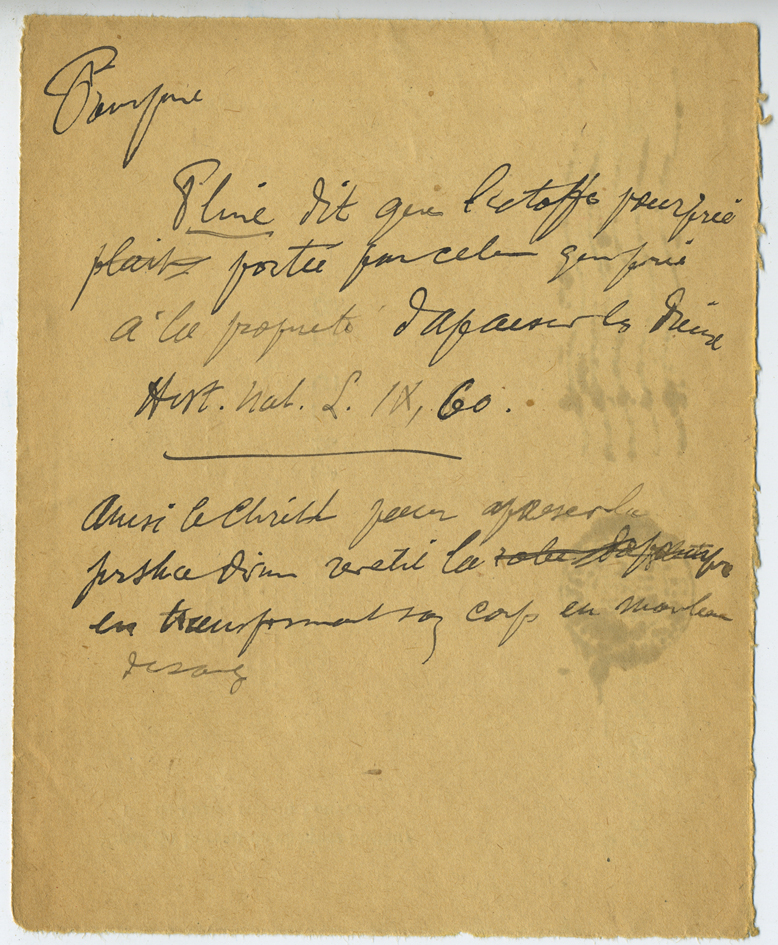 Pourpre
Pline dit que l'etoffe pourprée
plait portée parcelle
à la propreté d'apaiser les Dieux
Hist. Nat. L. IX, 60.
Ainsi le Christ pour apaiser la
justice divine revetit la robe de pourpre
en transformant son corps en morceau
de sang